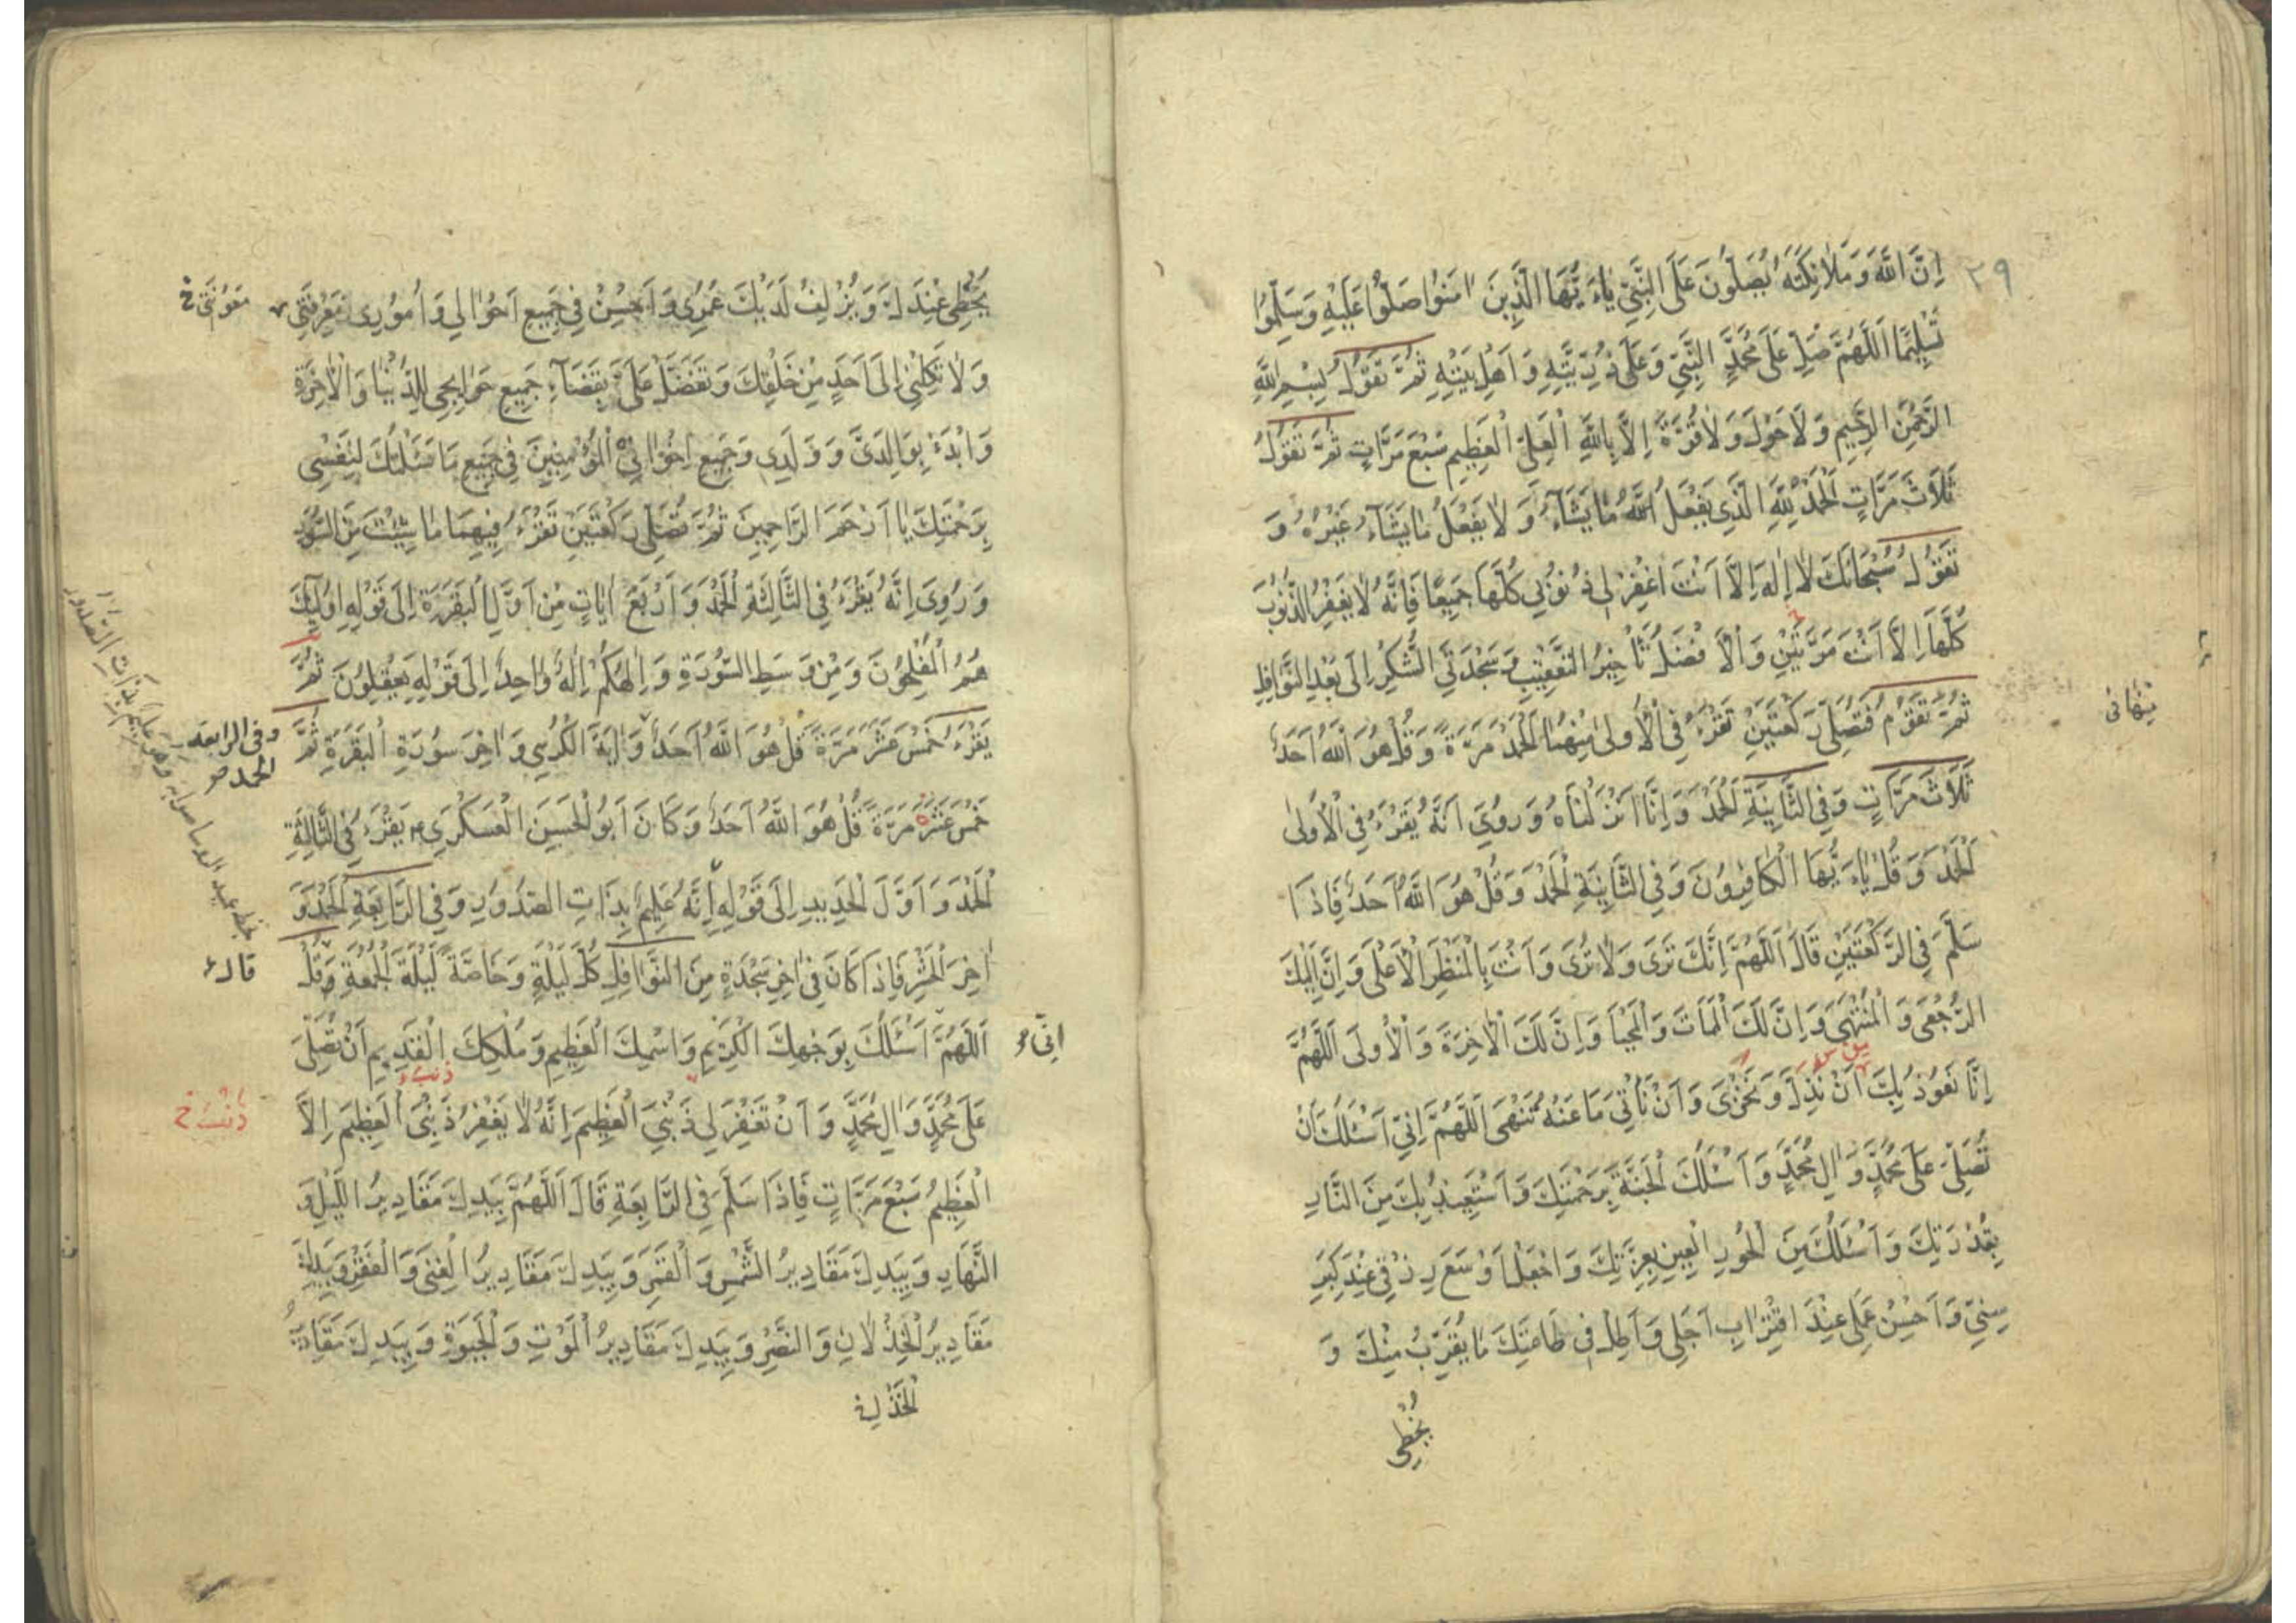 ٢٩
اِنَّ اللّٰهَ وَمَلائِكَتَهُ يُصَلُّونَ عَلَى النَّبِيِّ يٰاءَيُّهَا الَّذِينَ اٰمَنُوا صَلُّوا عَلَيْهِ وَسَلِّمُوا
تَسْلِيمًا اَللّٰهُمَّ صَلِّ عَلَى مُحَمَّدٍ النَّبِيِّ وَعَلَى ذُرِّيَّتِهِ وَاَهْلِ بَيْتِهِ ثُمَّ تَقُولُ بِسْمِ اللّٰهِ
الرَّحْمٰنِ الرَّحِيمِ وَلَا حَوْلَ وَلٰا قُوَّةَ اِلَّا بِاللّٰهِ الْعَلِيِّ الْعَظِيمِ سَبْعَ مَرَّاتٍ ثُمَّ تَقُولُ
ثَلَاثَ مَرَّاتٍ اَلْحَمْدُ لِلّٰهِ الَّذِي يَفْعَلُ اللّٰهُ مٰا يَشَآءُ وَلٰا يَفْعَلُ مٰا يَشَآءُ غَيْرُهُ وَ
تَقُولُ سُبْحٰانَكَ لٰا اِلٰهَ اِلَّا اَنْتَ اغْفِرْ لِي ذُنُوبِي كُلَّهٰا جَمِيعًا فَاِنَّهُ لٰا يَغْفِرُ الذُّنُوبَ
كُلَّهٰا اِلَّا اَنْتَ مَرَّتَيْنِ وَالْاَفْضَلُ تَأْخِيرُ التَّعْقِيبِ وَسَجْدَتَيِ الشُّكْرِ اِلَى بَعْدِ النَّوَافِلِ
ثُمَّ تَقُومُ فَتُصَلِّي رَكْعَتَيْنِ تَقْرَءُ فِي الْاُولىٰ مِنْهُمٰا الْحَمْدَ مَرَّةً وَقُلْ هُوَ اللّٰهُ اَحَدٌ
ثَلَاثَ مَرَّاتٍ وَفِي الثَّانِيَةِ الْحَمْدَ وَاِنَّا اَنْزَلْنٰاهُ وَرُوِيَ اَنَّهُ يُقْرَءُ فِي الْاُولىٰ
الْحَمْدَ وَقُلْ يٰاءَيُّهَا الْكٰافِرُونَ وَفِي الثَّانِيَةِ الْحَمْدَ وَقُلْ هُوَ اللّٰهُ اَحَدٌ فَاِذَا
سَلَّمَ فِي الرَّكْعَتَيْنِ قَالَ اَللّٰهُمَّ اِنَّكَ تَرَى وَلٰا تُرَى وَاَنْتَ بِالْمَنْظَرِ الْاَعْلَى وَاِنَّ اِلَيْكَ
الرُّجْعَى وَالْمُنْتَهَى وَاِنَّ لَكَ الْمَمَاتَ وَالْمَحْيَا وَاِنَّ لَكَ الْاٰخِرَةَ وَالْاُولَى اَللّٰهُمَّ
اِنَّا نَعُوذُ بِكَ اَنْ نَذِلَّ وَنَخْزَى وَاَنْ نَأْتِيَ مَا عَنْهُ تَنْهَى اَللّٰهُمَّ اِنِّي اَسْئَلُكَ اَنْ
تُصَلِّيَ عَلَى مُحَمَّدٍ وَاٰلِ مُحَمَّدٍ وَاَسْئَلُكَ الْجَنَّةَ بِرَحْمَتِكَ وَاَسْتَعِيذُ بِكَ مِنَ النَّارِ
بِقُدْرَتِكَ وَاَسْئَلُكَ مِنَ الْحُورِ الْعِينِ بِعِزَّتِكَ وَاجْعَلْ اَوْسَعَ رِزْقِي عِنْدَ كِبَرِ
سِنِّي وَاَحْسِنْ عَمَلِي عِنْدَ اقْتِرٰابِ اَجَلِي وَاَطِلْ فِي طٰاعَتِكَ مٰا يُقَرِّبُ مِنْكَ وَ
يُحْظِي
يُحْظِي عِنْدَكَ وَيُزْلِفُ لَدَيْكَ عُمْرِي وَاَحْسِنْ فِي جَمِيعِ اَحْوٰالِي وَاُمُورِي مَعْرِفَتِي
مَعُونَتِي خ
وَلٰا تَكِلْنِي اِلَى اَحَدٍ مِنْ خَلْقِكَ وَتَفَضَّلْ عَلَيَّ بِقَضَآءِ جَمِيعِ حَوٰائِجِي لِلدُّنْيٰا وَالْاٰخِرَةِ
وَابْدَءْ بِوٰالِدَيَّ وَوَلَدِي وَجَمِيعِ اِخْوٰانِيَ الْمُؤْمِنِينَ فِي جَمِيعِ مَا سَئَلْتُكَ لِنَفْسِي
بِرَحْمَتِكَ يٰا اَرْحَمَ الرَّاحِمِينَ ثُمَّ تُصَلِّي رَكْعَتَيْنِ تَقْرَءُ فِيهِمَا مٰا شِئْتَ مِنَ السُّوَرِ
وَرُوِيَ اِنَّهُ يُقْرَءُ فِي الثَّالِثَةِ الْحَمْدَ وَاَرْبَعَ اٰيٰاتٍ مِنْ اَوَّلِ الْبَقَرَةِ اِلَى قَوْلِهِ اُولٰئِكَ
هُمُ الْمُفْلِحُونَ وَمِنْ وَسَطِ السُّورَةِ وَاِلٰهُكُمْ اِلٰهٌ وٰاحِدٌ اِلَى قَوْلِهِ يَعْقِلُونَ ثُمَّ
يَقْرَءُ خَمْسَ عَشْرَ مَرَّةً قُلْ هُوَ اللّٰهُ اَحَدٌ وَاٰيَةَ الْكُرْسِي وَاٰخِرَ سُورَةِ الْبَقَرَةِ ثُمَّ
وفي الرابعة
الحمد صر
خَمْسَ عَشْرَةَ مَرَّةً قُلْ هُوَ اللّٰهُ اَحَدٌ وَكَانَ اَبُو الْحَسَنِ الْعَسْكَرِي ع يَقْرَءُ فِي الثَّالِثَةِ
الْحَمْدَ وَاَوَّلَ الْحَدِيدِ اِلَى قَوْلِهِ اِنَّهُ عَلِيمٌ بِذَاتِ الصُّدُورِ وَفِي الرَّابِعَةِ الْحَمْدَ وَ
اٰخِرَ الْحَشْرِ فَاِذَا كَانَ فِي اٰخِرِ سَجْدَةٍ مِنَ النَّوَافِلِ كُلَّ لَيْلَةٍ وَخَاصَّةً لَيْلَةَ الْجُمُعَةِ وَقُلْ
قال
اَللّٰهُمَّ اَسْئَلُكَ بِوَجْهِكَ الْكَرِيمِ وَاسْمِكَ الْعَظِيمِ وَمُلْكِكَ الْقَدِيمِ اَنْ تُصَلِّيَ
اِنِّي
عَلَى مُحَمَّدٍ وَاٰلِ مُحَمَّدٍ وَاَنْ تَغْفِرَ لِي ذَنْبِيَ الْعَظِيمَ اِنَّهُ لٰا يَغْفِرُ ذَنْبِيَ الْعَظِيمَ اِلَّا
الْعَظِيمُ سَبْعَ مَرَّاتٍ فَاِذَا سَلَّمَ فِي الرَّابِعَةِ قَالَ اَللّٰهُمَّ بِيَدِكَ مَقَادِيرُ اللَّيْلِ وَ
النَّهَارِ وَبِيَدِكَ مَقَادِيرُ الشَّمْسِ وَالْقَمَرِ وَبِيَدِكَ مَقَادِيرُ الْغِنَى وَالْفَقْرِ وَبِيَدِكَ
مَقَادِيرُ الْخِذْلٰانِ وَالنَّصْرِ وَبِيَدِكَ مَقَادِيرُ الْمَوْتِ وَالْحَيٰوةِ وَبِيَدِكَ مَقَادِيرُ